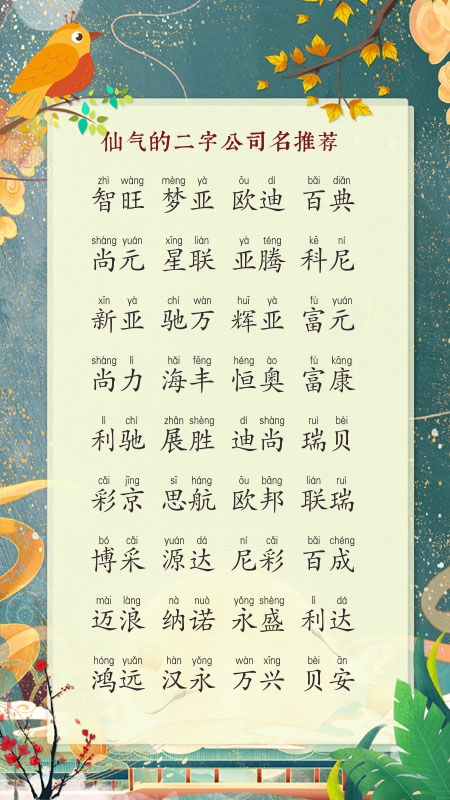 仙气的二字公司名推荐
zhì wàng mèng yà ōu dí bǎi diǎn
智旺 梦亚 欧迪 百典
shàng yuán xīng lián yà téng kē ní
尚元 星联 亚腾 科尼
xīn yà chí wàn huī yà fù yuán
新亚 驰万 辉亚 富元
shàng lì hǎi fēng héng ào fù kāng
尚力 海丰 恒奥 富康
lì chí zhǎn shèng dí shàng ruì bèi
利驰 展胜 迪尚 瑞贝
cǎi jīng sī háng ōu bāng lián ruì
彩京 思航 欧邦 联瑞
bó cǎi yuán dá ní cǎi bǎi chéng
博采 源达 尼彩 百成
mài làng nà nuò yǒng shèng lì dá
迈浪 纳诺 永盛 利达
hóng yuǎn hàn yǒng wàn xīng bèi ān
鸿远 汉永 万兴 贝安